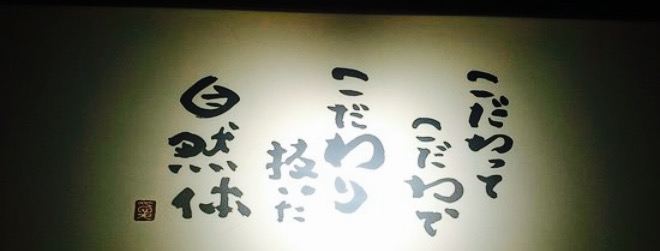 こだわって
こだわって
こだわり
抜いた
自然体